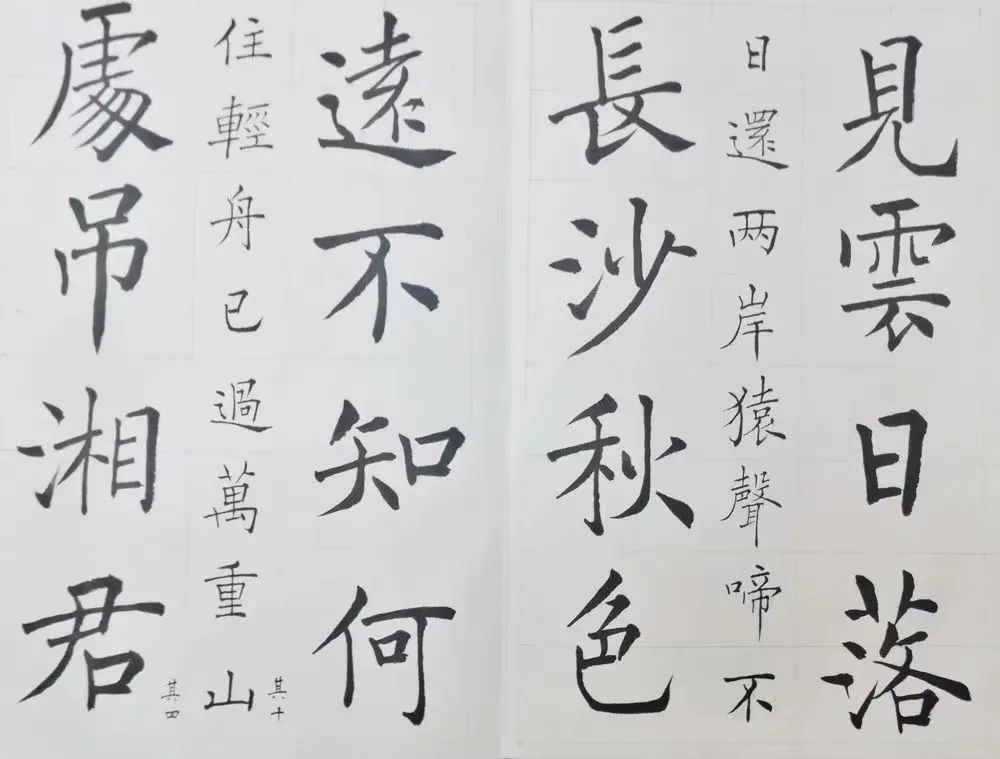 見雲日落
日還两岸猿聲啼不
長沙秋色
遠不知何
住輕舟已過萬重山
其十
處吊湘君
其四